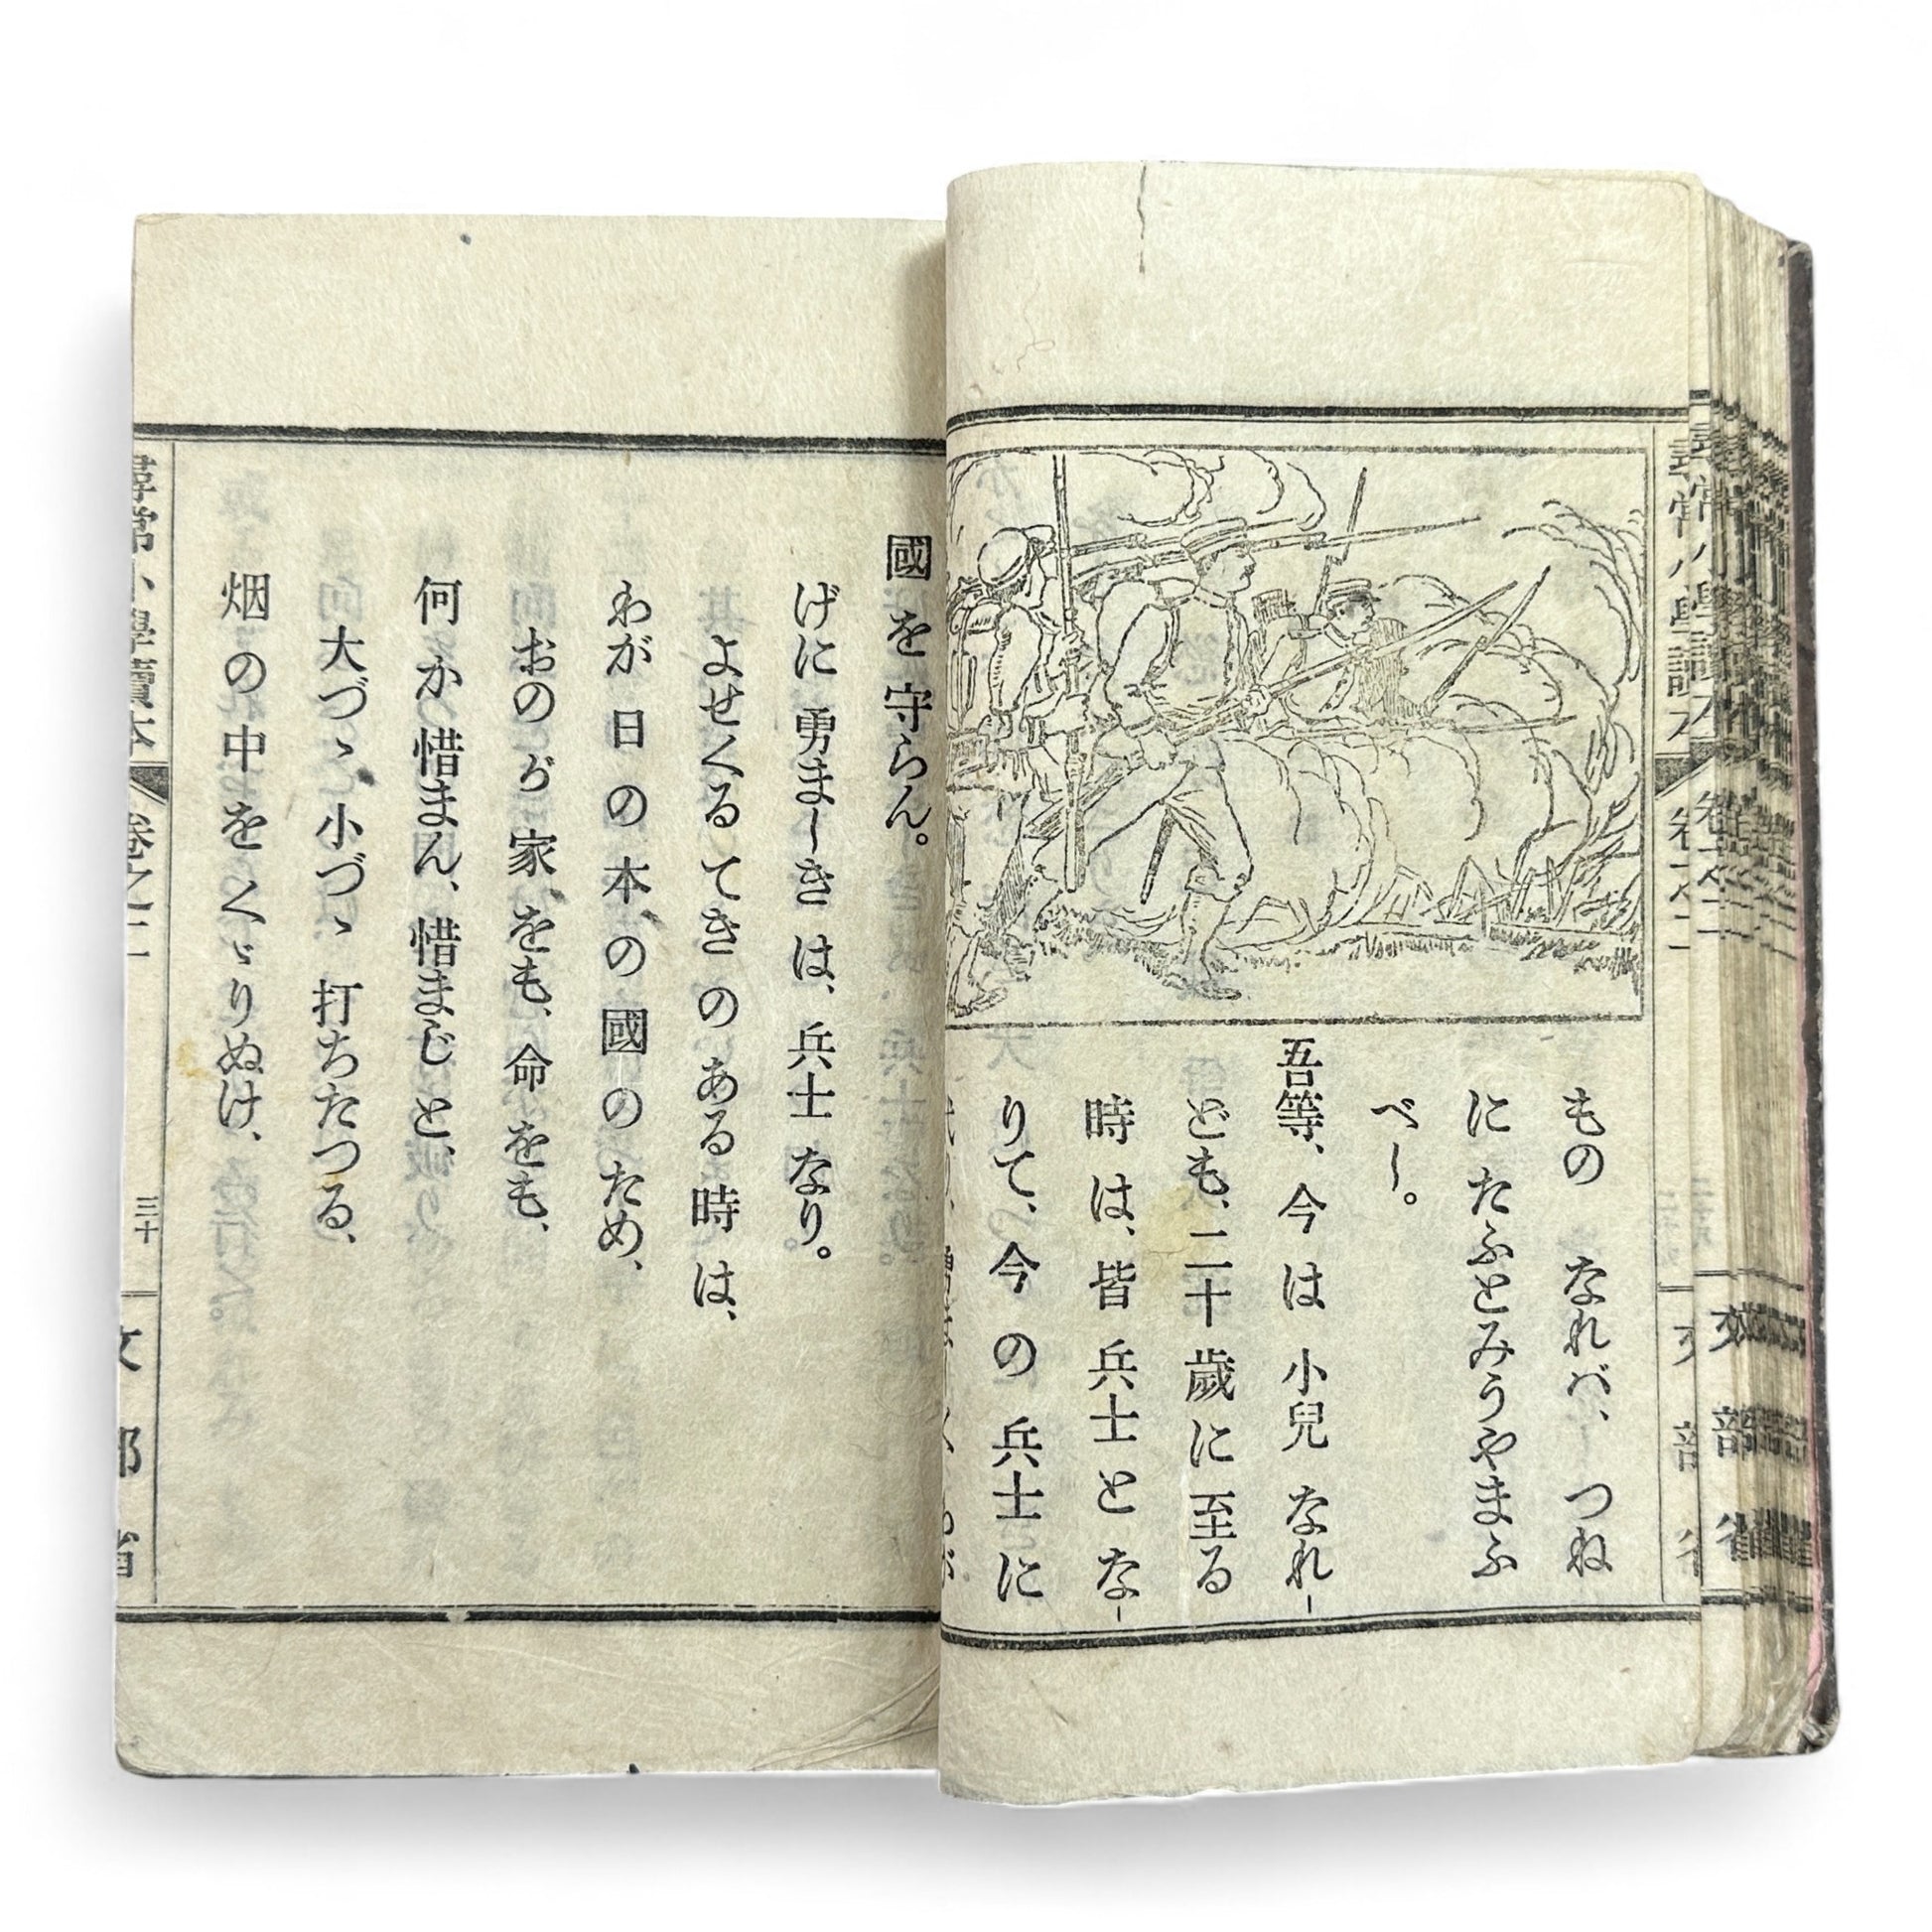 尋常小學讀本 卷之二
文部省
もの なれバ、つね
に たふとみうやまふ
べし。
吾等、今 は 小兒 なれ-
ども、二十歲に至る
時 は、皆 兵士 と な-
りて、今 の 兵士 に
國 を 守らん。
げに 勇ましき は、兵士 なり。
よせくる てき の ある 時 は、
わが 日 の 本、の 國 の ため、
おのが 家をも、命をも、
何 か 惜まん、惜まじ と、
大づゝ 小づゝ 打ちたつる、
烟 の 中 を くゞりぬけ、
尋常小學讀本 卷之二 三十 文部省